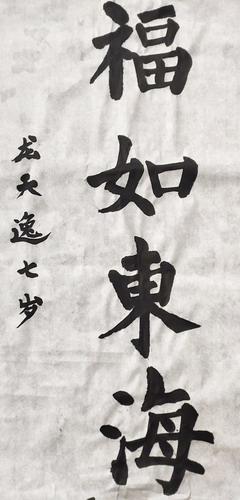 福如東海
龙天逸七岁